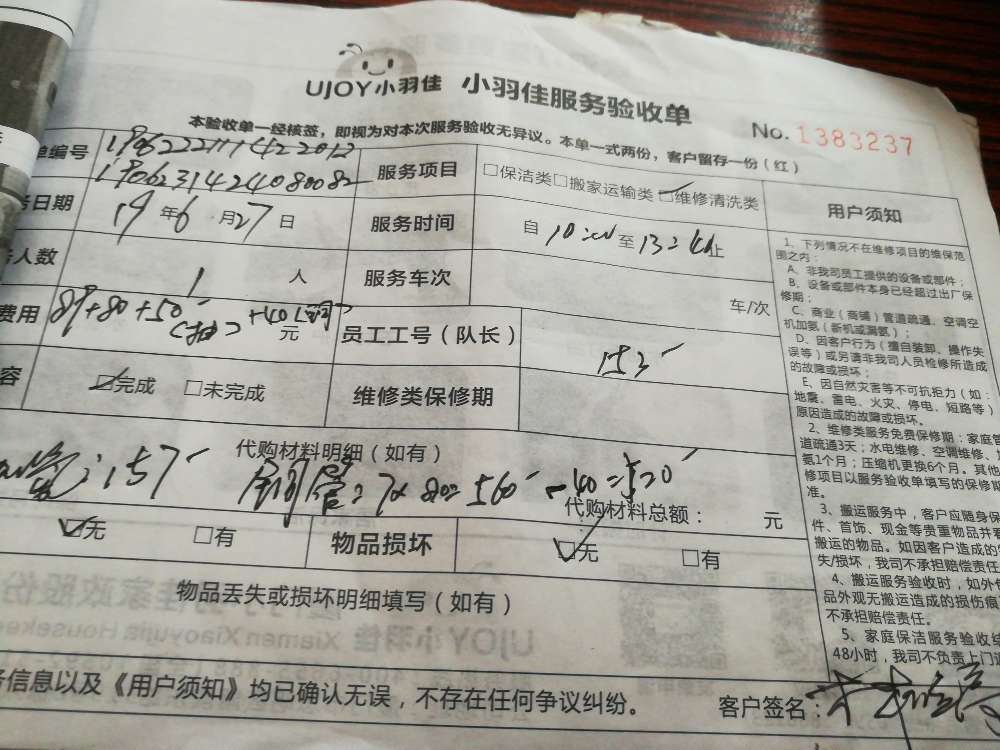 UJOY小羽佳 小羽佳服务验收单
No.1383237
本验收单一经核签，即视为对本次服务验收无异议。本单一式两份，客户留存一份（红）
单编号
服务项目 □保洁类□搬家运输类□维修清洗类
用户须知
日期 19年6月27日
服务时间 自 10: 至 13: 止
人数 1 人
服务车次 车/次
费用 89+80+50 +40 元
员工工号（队长） 153
容 □完成 □未完成
维修类保修期
代购材料明细（如有）
157 铜管:7×80=560-40=520
代购材料总额： 元
□无 □有 物品损坏 □无 □有
物品丢失或损坏明细填写（如有）
信息以及《用户须知》均已确认无误，不存在任何争议纠纷。
客户签名：
1、下列情况不在维修项目的维保范
围之内：
A、非我司员工提供的设备或部件；
B、设备或部件本身已经超过出厂保
修期；
C、商业（商铺）管道疏通、空调空
机加氨（新机或漏氨）；
D、因客户行为（擅自装卸、操作失
误等）或另请非我司人员检修所造成
的故障或损坏；
E、因自然灾害等不可抗拒力（如：
地震、雷电、火灾、停电、短路等）
原因造成的故障或损坏。
2、维修类服务免费保修期：家庭管
道疏通3天；水电维修、空调维修、
氨1个月；压缩机更换6个月。其他
修项目以服务验收单填写的保修期
准。
3、搬运服务中，客户应随身保
件、首饰、现金等贵重物品并看
搬运的物品。如因客户造成的
失/损坏，我司不承担赔偿责任
4、搬运服务验收时，如外包
品外观无搬运造成的损伤痕
不承担赔偿责任。
5、家庭保洁服务验收结
48小时，我司不负责上门